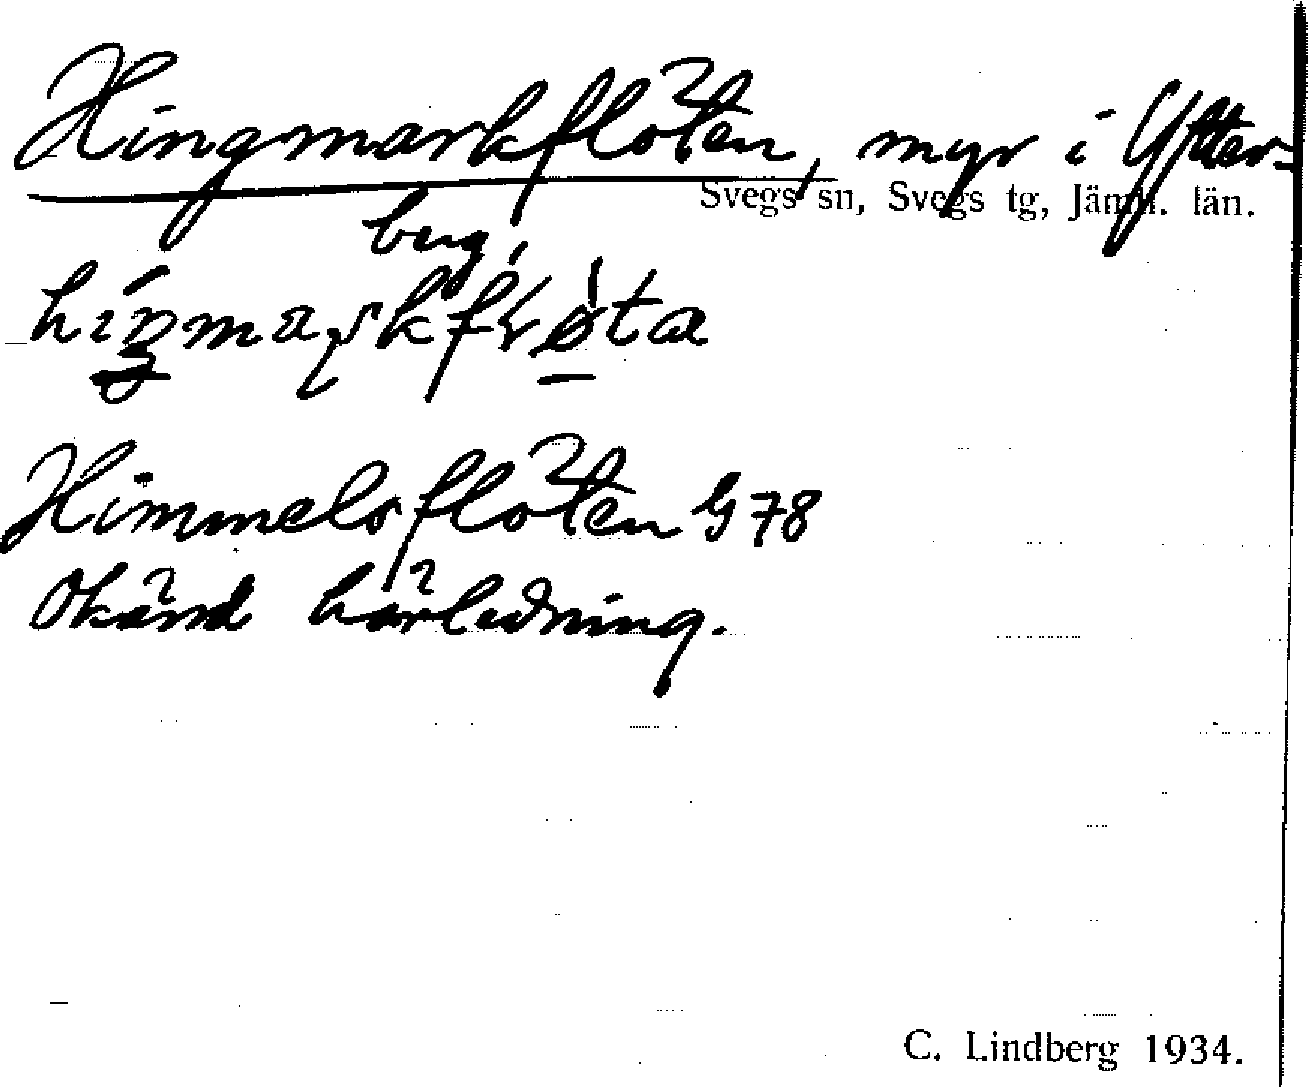 Hingmarkflöten, myr i Ytter-
Svegs sn, Svegs tg, Jämtl. län.
berg,
Himmelsflöten G 78
Okänd härledning.
C. Lindberg 1934.